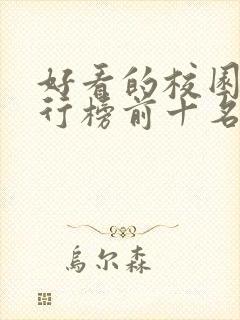 好看的校园
行榜前十名
乌尔森